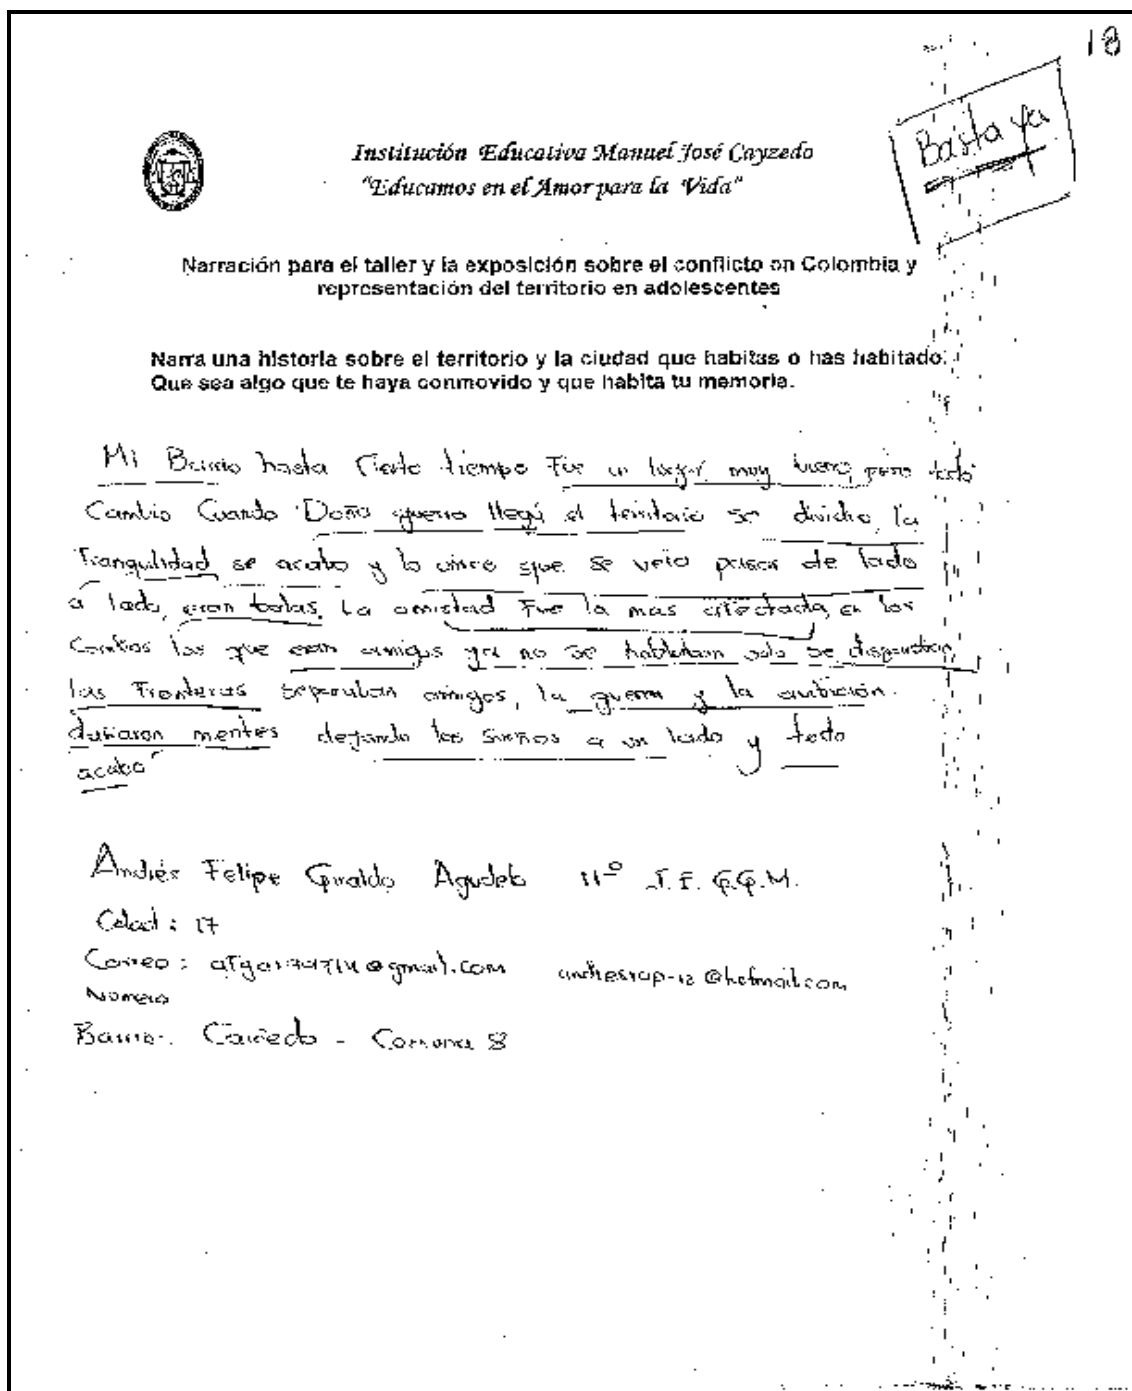 18
Basta ya
Institución Educativa Manuel José Cayzedo
"Educamos en el Amor para la Vida"
Narración para el taller y la exposición sobre el conflicto en Colombia y
representación del territorio en adolescentes
Narra una historia sobre el territorio y la ciudad que habitas o has habitado.
Que sea algo que te haya conmovido y que habita tu memoria.
Mi Barrio hasta cierto tiempo Fue un lugar muy bueno, pero todo
Cambio Cuando Doña guerra llegó el territorio se dividio, la
Tranquilidad se acabo y lo unico que se veia pasar de lado
a lado, eran balas. La amistad Fue la mas afectada, en los
Combos los que eran amigos ya no se hablaban solo se disparaban,
las Fronteras separaban amigos, la guerra y la ambición
mentes dejando los sueños a un lado y todo
acabó
Andrés Felipe Giraldo Agudelo 11º
Edad: 17
Correo: @gmail.com @hotmail.com
Numero
Barrio: Caicedo - Comuna 8